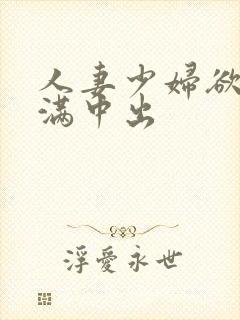 人妻少婦欲
滿中出
浮愛永世